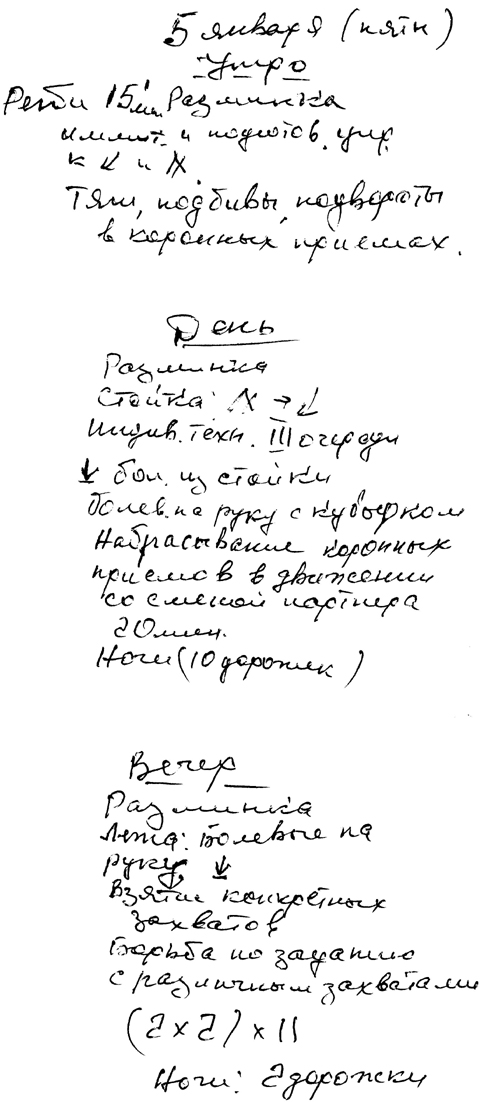 5 января (пятн)
Утро
Регби 15 мин Разминка
имит. и подготов. упр.
к ↙ и
Тяги, подбивы, подвороты
в коронных приемах.
День
Разминка
Стойка: → ↙
Индив. техн. III очереди
↓ бол. из стойки
болев. на руку с кувырком
Набрасывание коронных
приемов в движении
со сменой партнера
20 мин.
Ночи (10 дорожек)
Вечер
Разминка
Лежа: Болевые на
руку ↓
Взятие конкретных
захватов
Борьба по заданию
с различным захватами
(2 x 2) x 11
Ночи: 2 дорожки